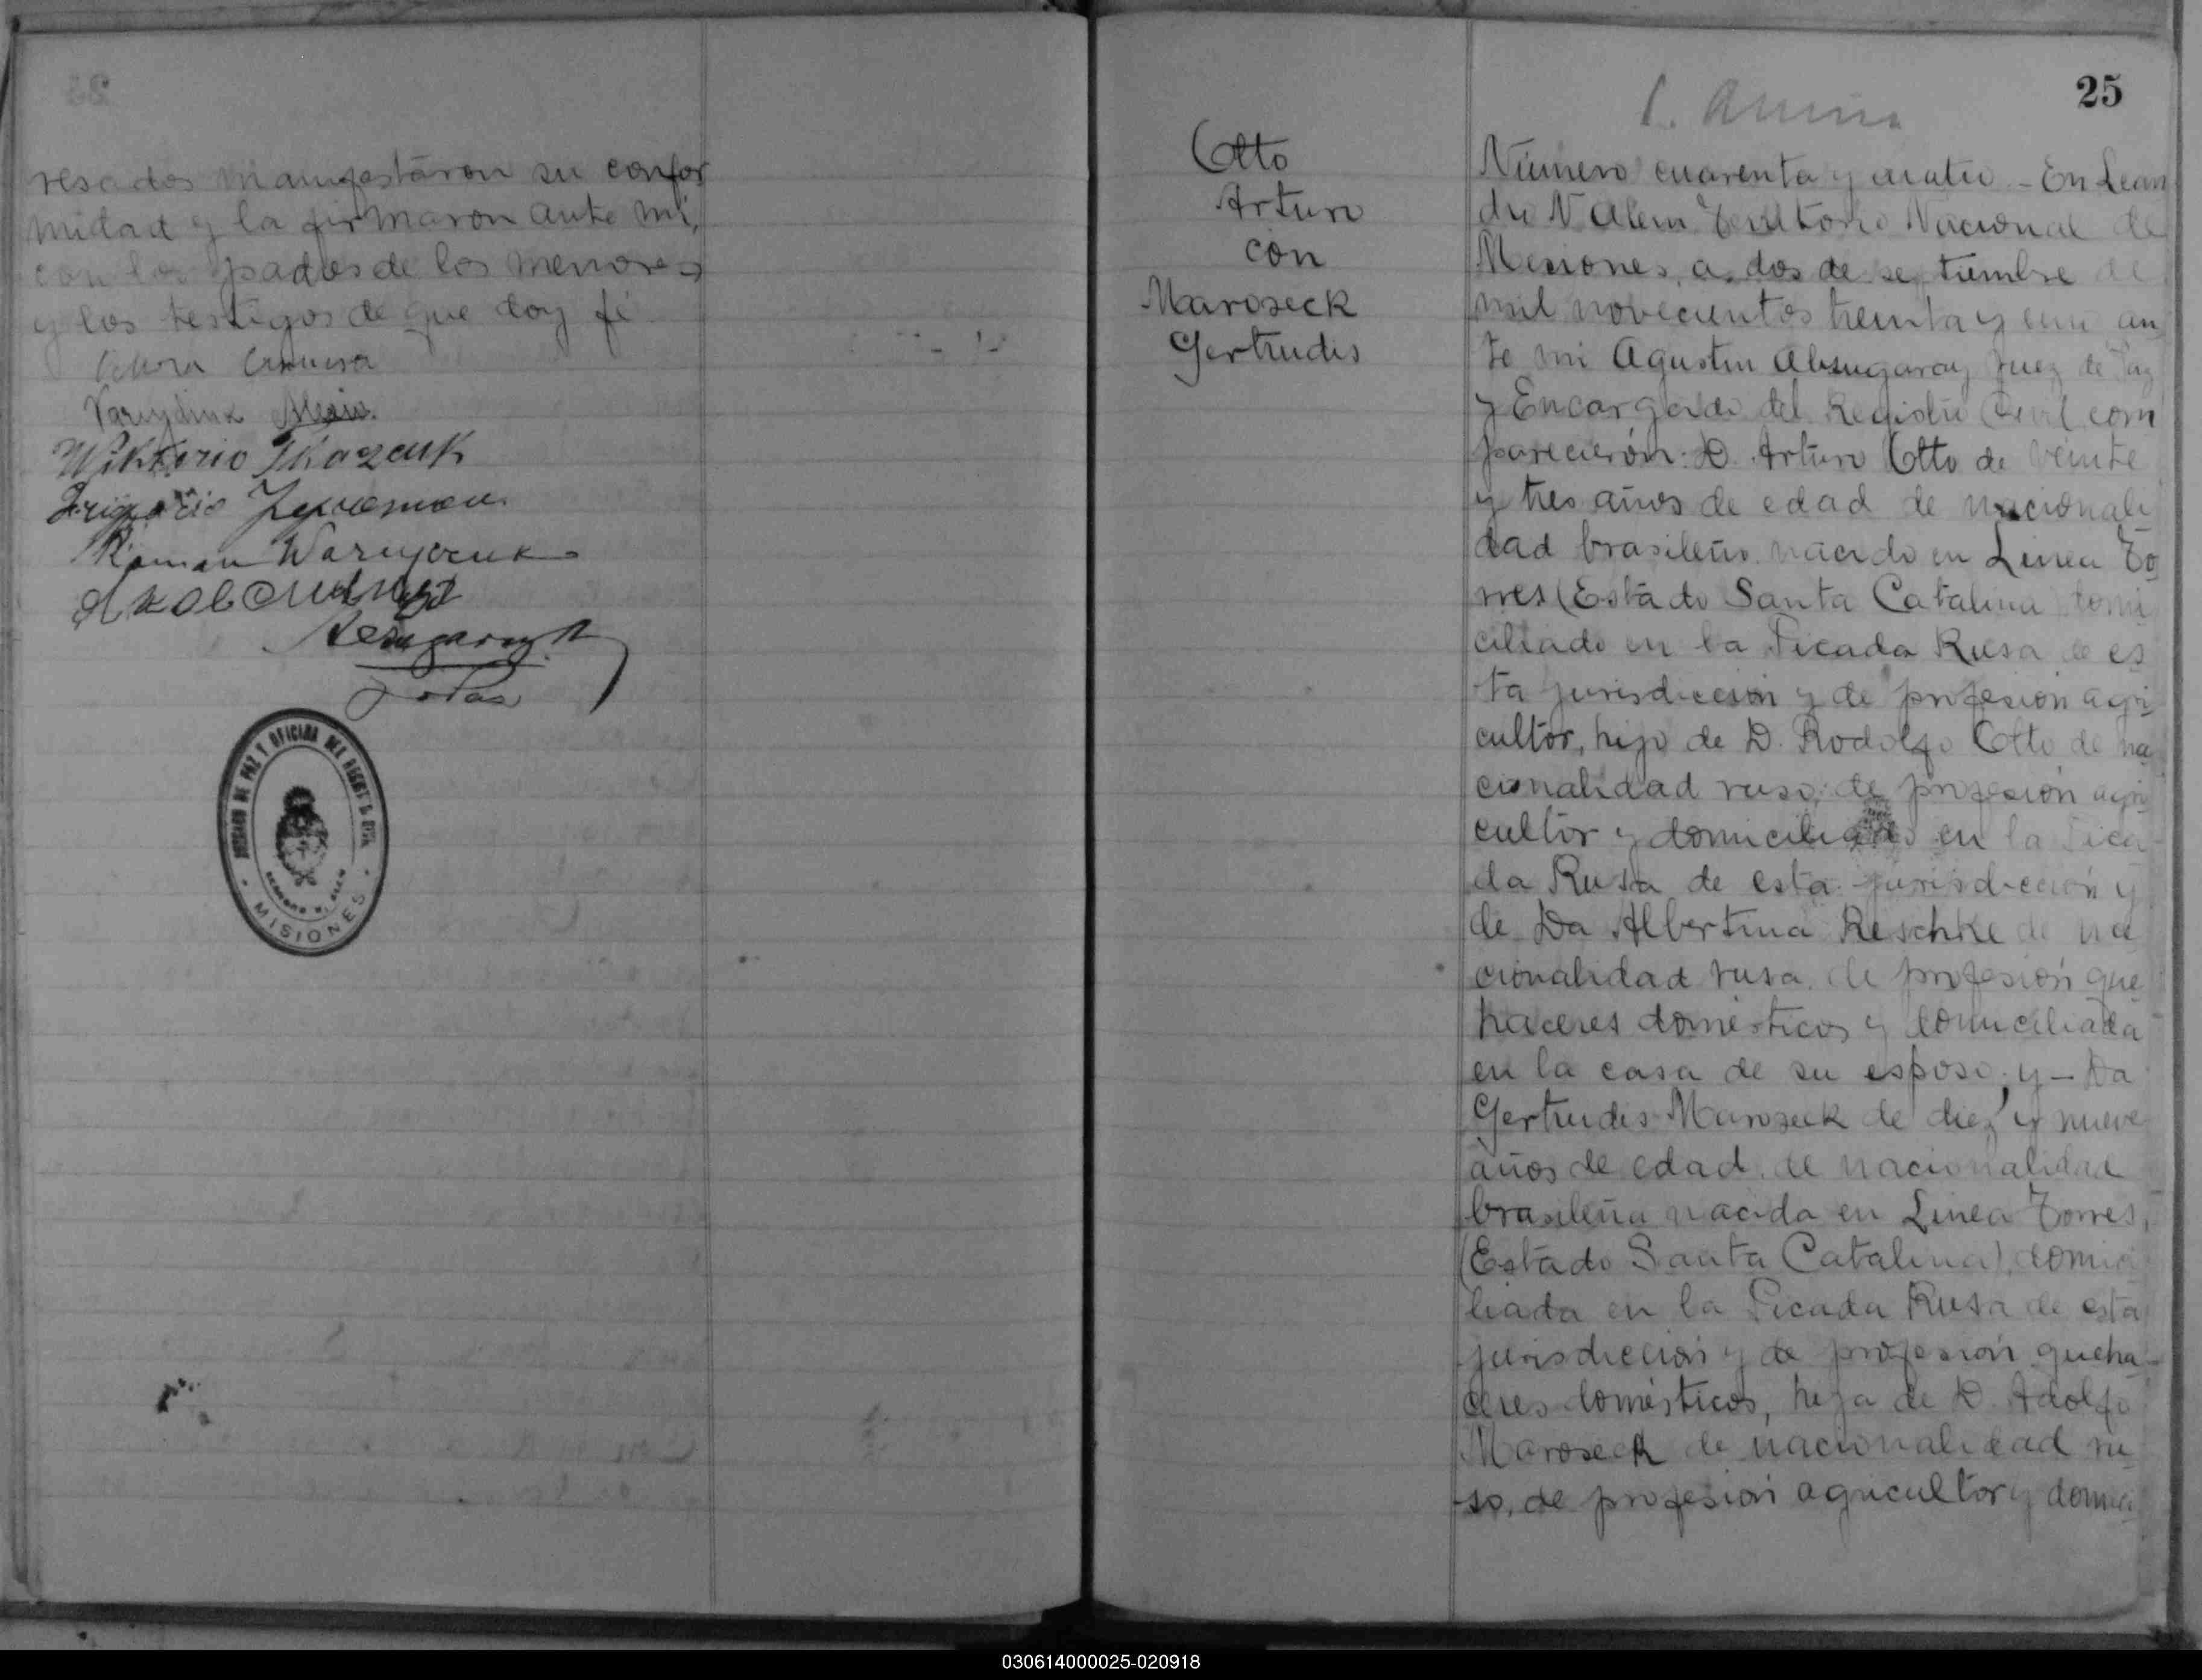 resados manifestaron su confor
midad y la firmaron ante mi,
con los padres de los menores
y los testigos de que doy fé
Wiktorio Tkazcuk
Roman
JUZGADO DE PAZ Y OFICINA DEL REGISTRO CIVIL
LEANDRO N. ALEM
MISIONES
Otto
Arturo
con
Maroseck
Gertrudis
25
Número cuarenta y cuatro - En Lean
dro N Alem Territorio Nacional de
Misiones, a dos de septiembre de
mil novecientos treinta y uno an
te mi Agustin Abzugaray Juez de Paz
y Encargado del Registro Civil com
parecieron: D. Arturo Otto de veinte
y tres años de edad de nacionali
dad brasileño nacido en Linea To
rres (Estado Santa Catalina) domi
ciliado en la Picada Rusa de es
ta jurisdiccion y de profesión agri
cultor, hijo de D. Rodolfo Otto de na
cionalidad ruso, de profesión agri
cultor y domiciliado en la Pica
da Rusa de esta jurisdicción y
de Da Albertina Reschke de na
cionalidad rusa, de profesión que
haceres domésticos y domiciliada
en la casa de su esposo; y - Da
Gertrudis Maroseck de diez y nueve
años de edad, de nacionalidad
brasileña nacida en Linea Torres,
(Estado Santa Catalina), domici
liada en la Picada Rusa de esta
jurisdicción y de profesión queha-
ceres domésticos, hija de D. Adolfo
Maroseck de nacionalidad ru-
so, de profesión agricultor y domici
030614000025-020918